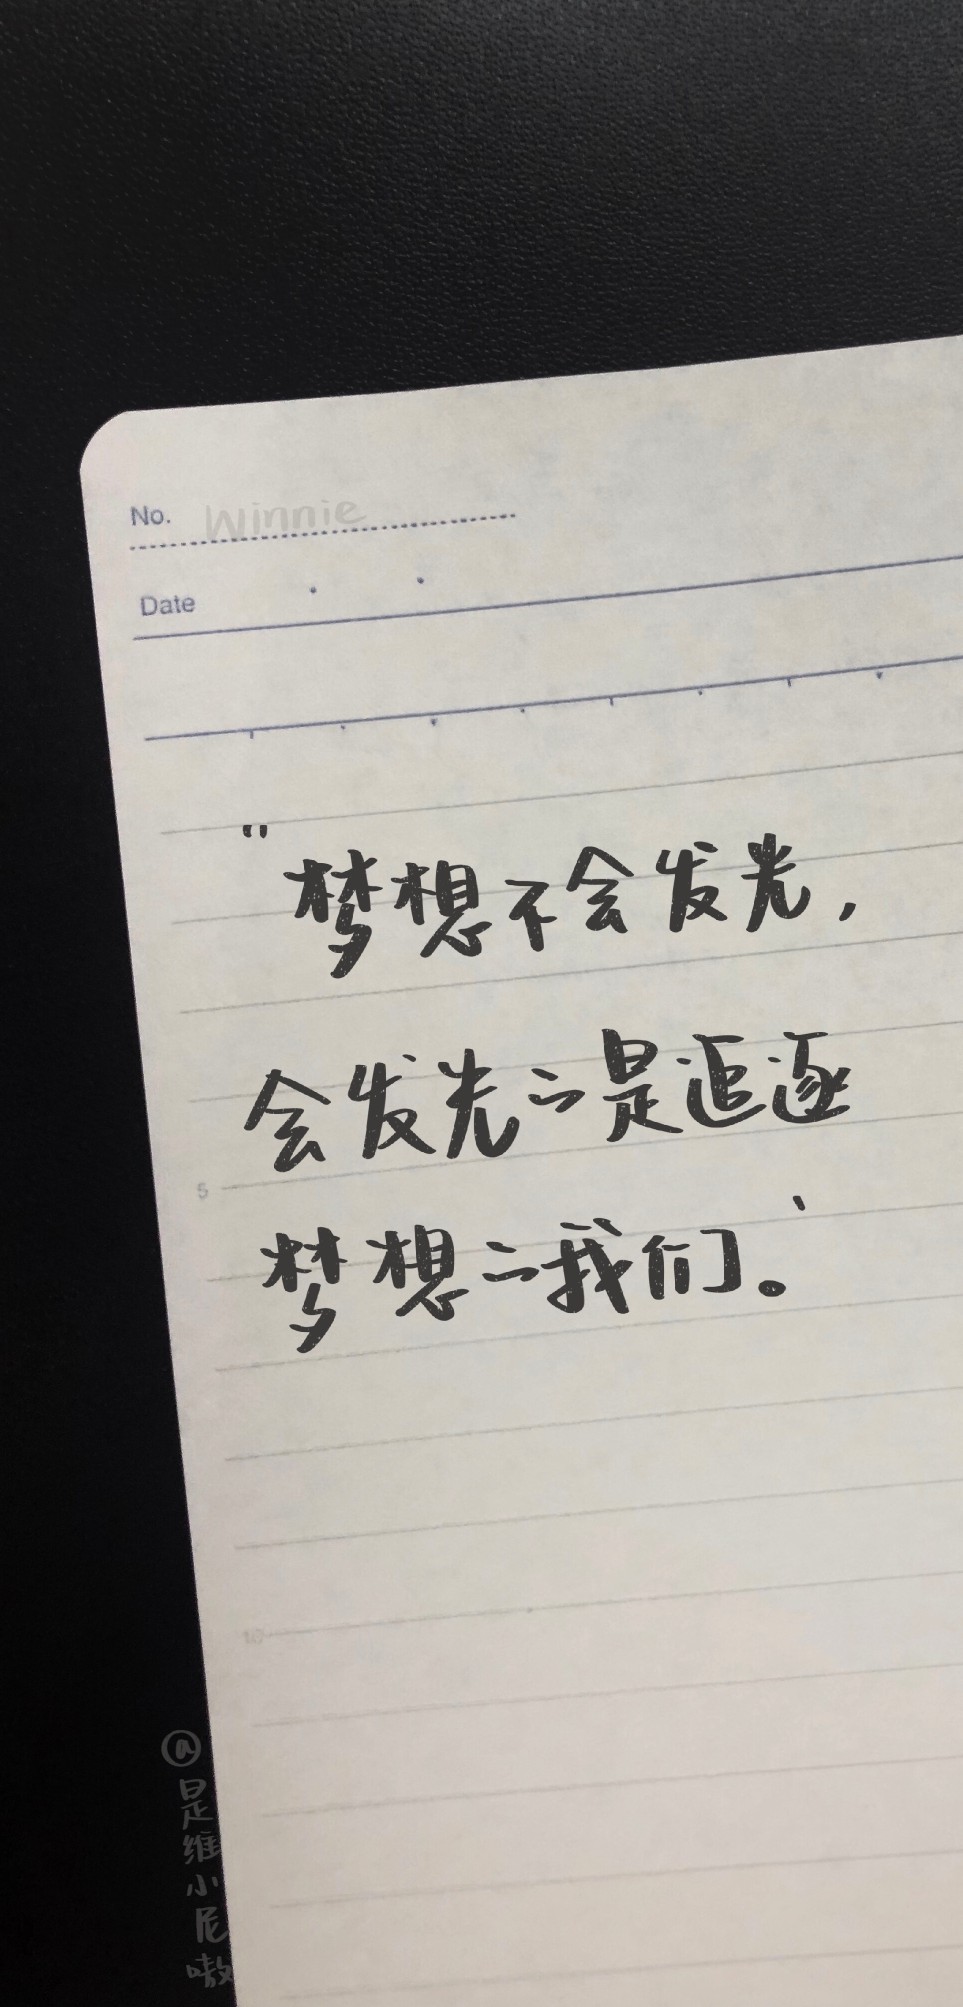 No. Winnie
Date
"梦想不会发光，
会发光的是追逐
梦想的我们。'
5
10
@是维小尼嗷